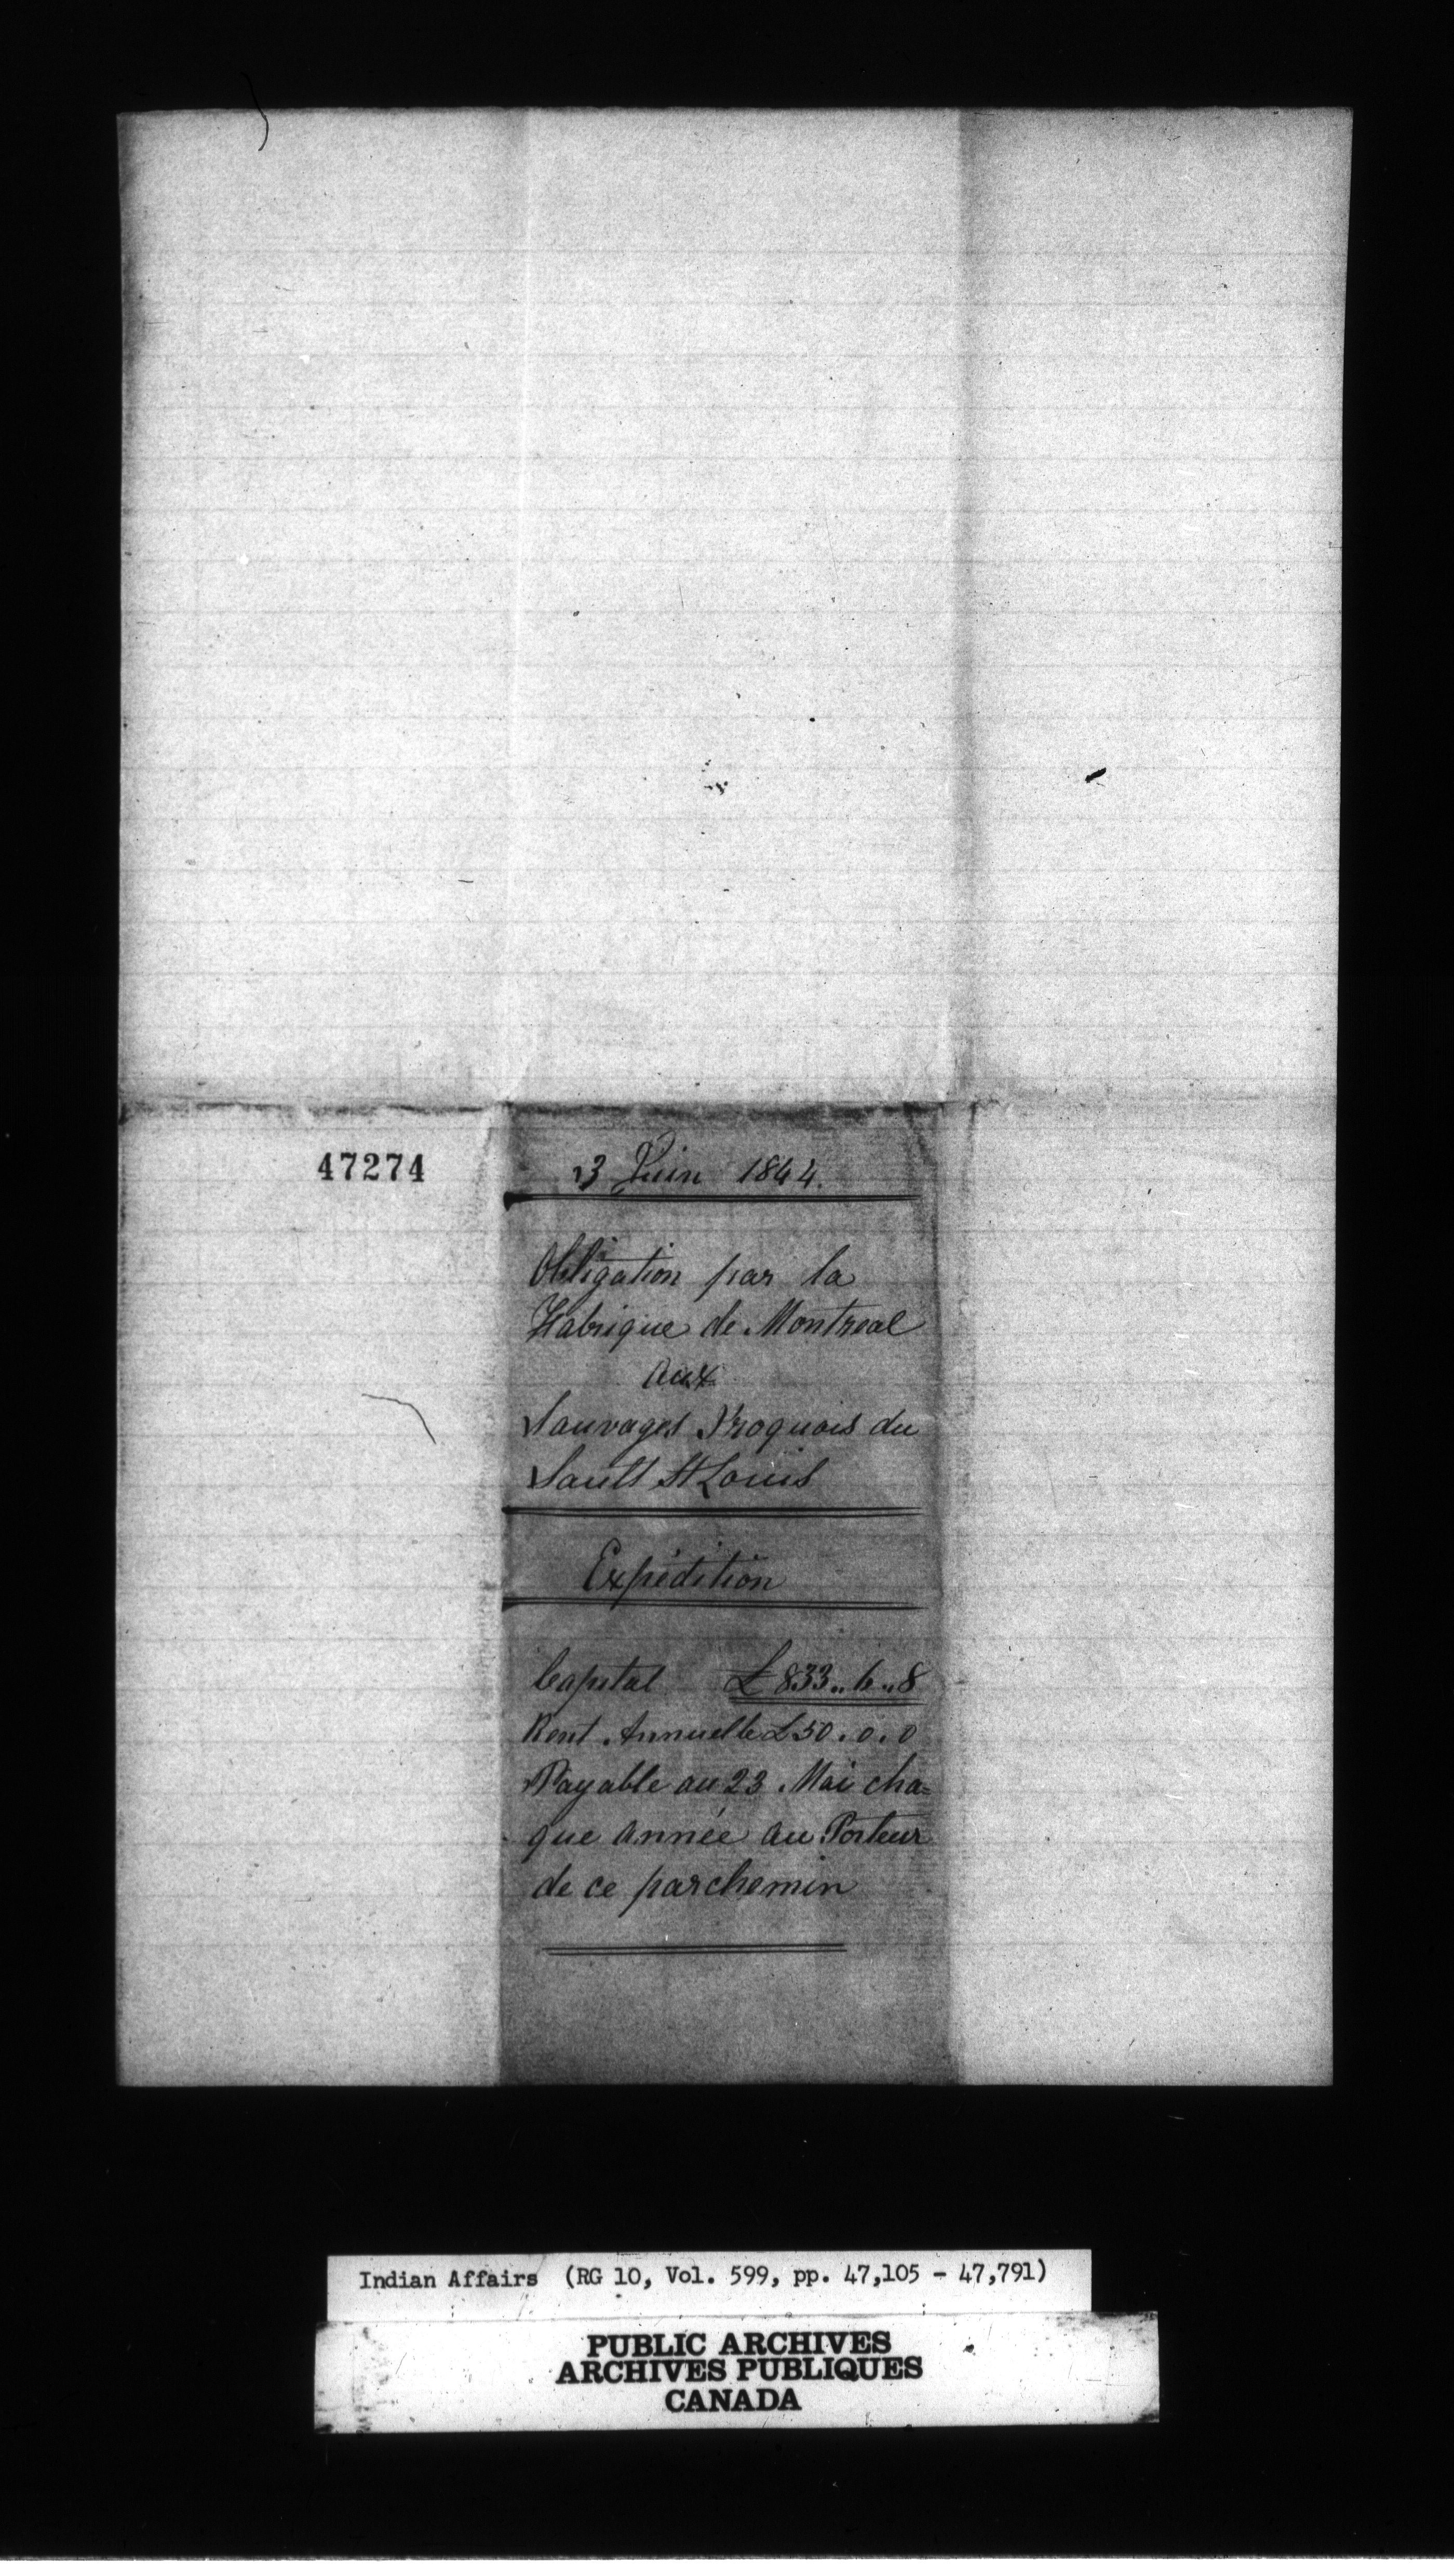 47274
3 Juin 1844.
Obligation par la
Fabrique de Montreal
aux
Sauvages Iroquois du
Sault St Louis
Expédition
Capital £833..6..8
Rent Annuelle £50.0.0
Payable au 23 Mai cha=
que année au Porteur
de ce parchemin
Indian Affairs (RG 10, Vol. 599, pp. 47,105 - 47,791)
PUBLIC ARCHIVES
ARCHIVES PUBLIQUES
CANADA